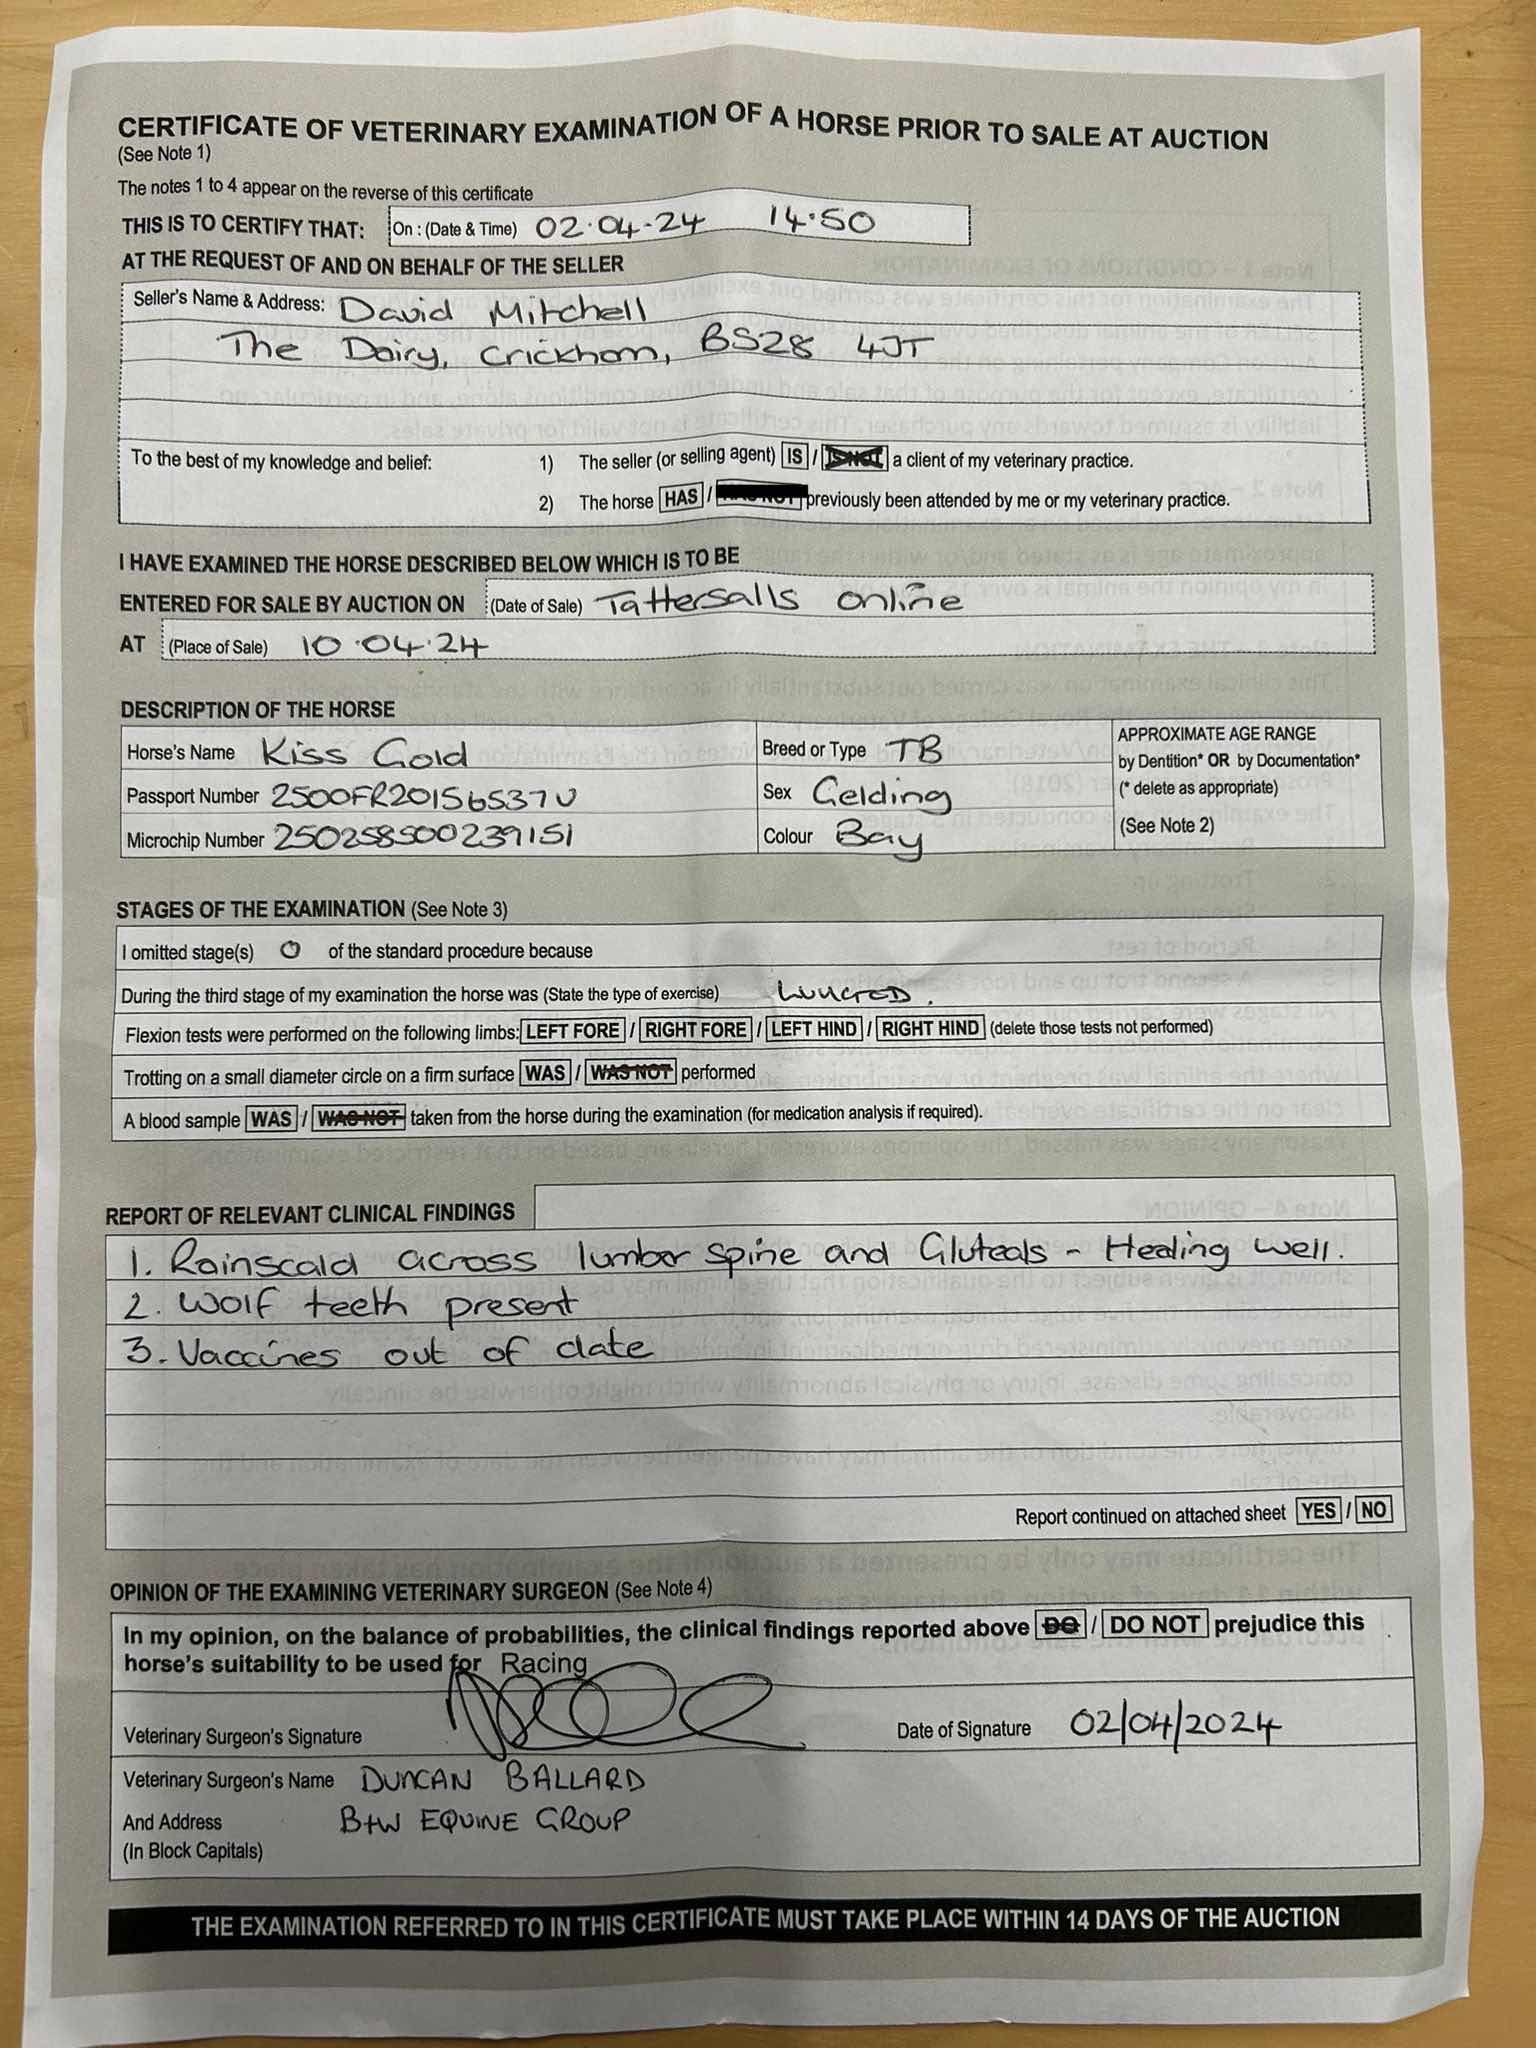 CERTIFICATE OF VETERINARY EXAMINATION OF A HORSE PRIOR TO SALE AT AUCTION
(See Note 1)
The notes 1 to 4 appear on the reverse of this certificate
THIS IS TO CERTIFY THAT: On : (Date & Time) 02.04.24 14.50
AT THE REQUEST OF AND ON BEHALF OF THE SELLER
Seller's Name & Address: David Mitchell
The Dairy, Crickham, BS28 4JT
To the best of my knowledge and belief: 1) The seller (or selling agent) IS / IS NOT a client of my veterinary practice.
2) The horse HAS / HAS NOT previously been attended by me or my veterinary practice.
I HAVE EXAMINED THE HORSE DESCRIBED BELOW WHICH IS TO BE
ENTERED FOR SALE BY AUCTION ON (Date of Sale) Tattersalls online
AT (Place of Sale) 10.04.24
DESCRIPTION OF THE HORSE
Horse's Name Kiss Gold Breed or Type TB APPROXIMATE AGE RANGE
by Dentition* OR by Documentation*
Passport Number 2500FR20156537U Sex Gelding (* delete as appropriate)
Microchip Number 250258500239151 Colour Bay (See Note 2)
STAGES OF THE EXAMINATION (See Note 3)
I omitted stage(s) 0 of the standard procedure because
During the third stage of my examination the horse was (State the type of exercise) LUNGED.
Flexion tests were performed on the following limbs: LEFT FORE / RIGHT FORE / LEFT HIND / RIGHT HIND (delete those tests not performed)
Trotting on a small diameter circle on a firm surface WAS / WAS NOT performed
A blood sample WAS / WAS NOT taken from the horse during the examination (for medication analysis if required).
REPORT OF RELEVANT CLINICAL FINDINGS
1. Rainscald across lumbar spine and Gluteals - Healing well.
2. Wolf teeth present
3. Vaccines out of date
Report continued on attached sheet YES / NO
OPINION OF THE EXAMINING VETERINARY SURGEON (See Note 4)
In my opinion, on the balance of probabilities, the clinical findings reported above DO / DO NOT prejudice this
horse's suitability to be used for Racing
Veterinary Surgeon's Signature Date of Signature 02/04/2024
Veterinary Surgeon's Name DUNCAN BALLARD
And Address B+W EQUINE GROUP
(In Block Capitals)
THE EXAMINATION REFERRED TO IN THIS CERTIFICATE MUST TAKE PLACE WITHIN 14 DAYS OF THE AUCTION